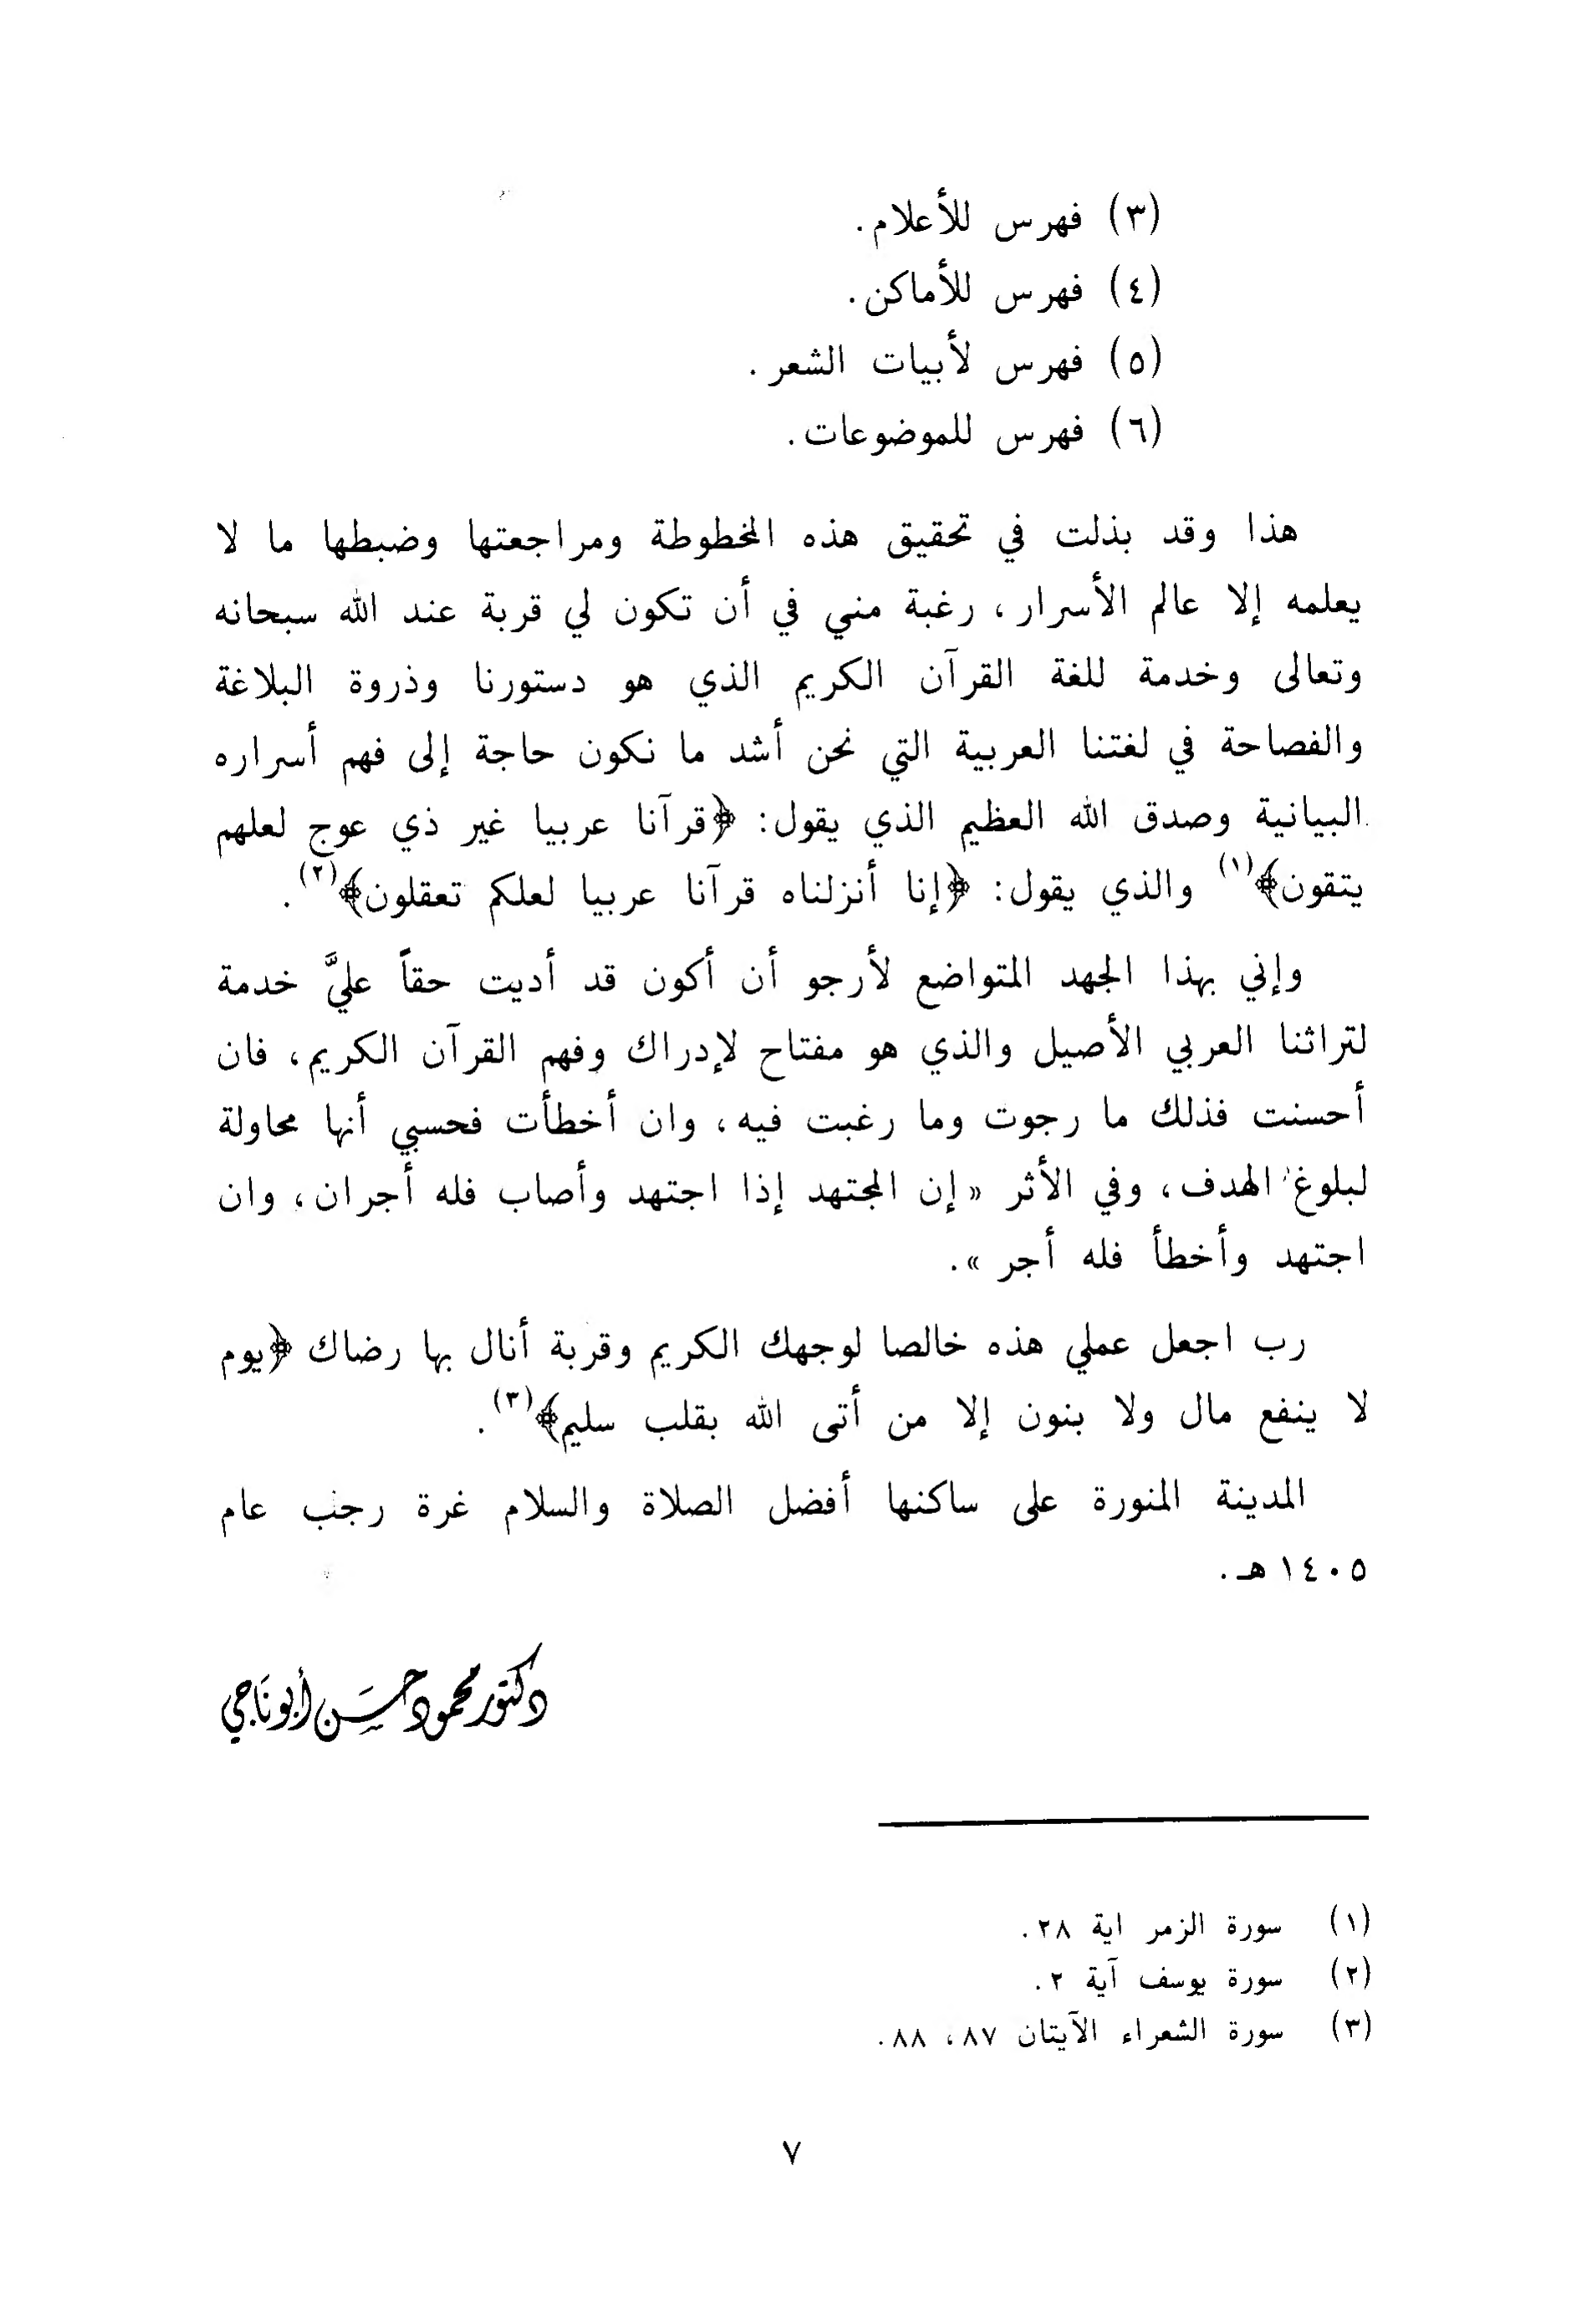 (٣) فهرس للأعلام.
(٤) فهرس للأماكن.
(٥) فهرس لأبيات الشعر.
(٦) فهرس للموضوعات.
هذا وقد بذلت في تحقيق هذه المخطوطة ومراجعتها وضبطها ما لا
يعلمه إلا عالم الأسرار، رغبة مني في أن تكون لي قربة عند الله سبحانه
وتعالى وخدمة للغة القرآن الكريم الذي هو دستورنا وذروة البلاغة
والفصاحة في لغتنا العربية التي نحن أشد ما نكون حاجة إلى فهم أسراره
البيانية وصدق الله العظيم الذي يقول: ﴿قرآنا عربيا غير ذي عوج لعلهم
يتقون﴾(١) والذي يقول: ﴿إنا أنزلناه قرآنا عربيا لعلكم تعقلون﴾(٢).
وإني بهذا الجهد المتواضع لأرجو أن أكون قد أديت حقاً عليَّ خدمة
لتراثنا العربي الأصيل والذي هو مفتاح لإدراك وفهم القرآن الكريم، فان
أحسنت فذلك ما رجوت وما رغبت فيه، وان أخطأت فحسبي أنها محاولة
لبلوغ الهدف، وفي الأثر «إن المجتهد إذا اجتهد وأصاب فله أجران، وان
اجتهد وأخطأ فله أجر».
رب اجعل عملي هذه خالصا لوجهك الكريم وقربة أنال بها رضاك ﴿يوم
لا ينفع مال ولا بنون إلا من أتى الله بقلب سليم﴾(٣).
المدينة المنورة على ساكنها أفضل الصلاة والسلام غرة رجب عام
١٤٠٥ هـ.
دكتور محمود حسَن أبو نَاجي
(١) سورة الزمر اية ٢٨.
(٢) سورة يوسف آية ٢.
(٣) سورة الشعراء الآيتان ٨٧، ٨٨.
٧